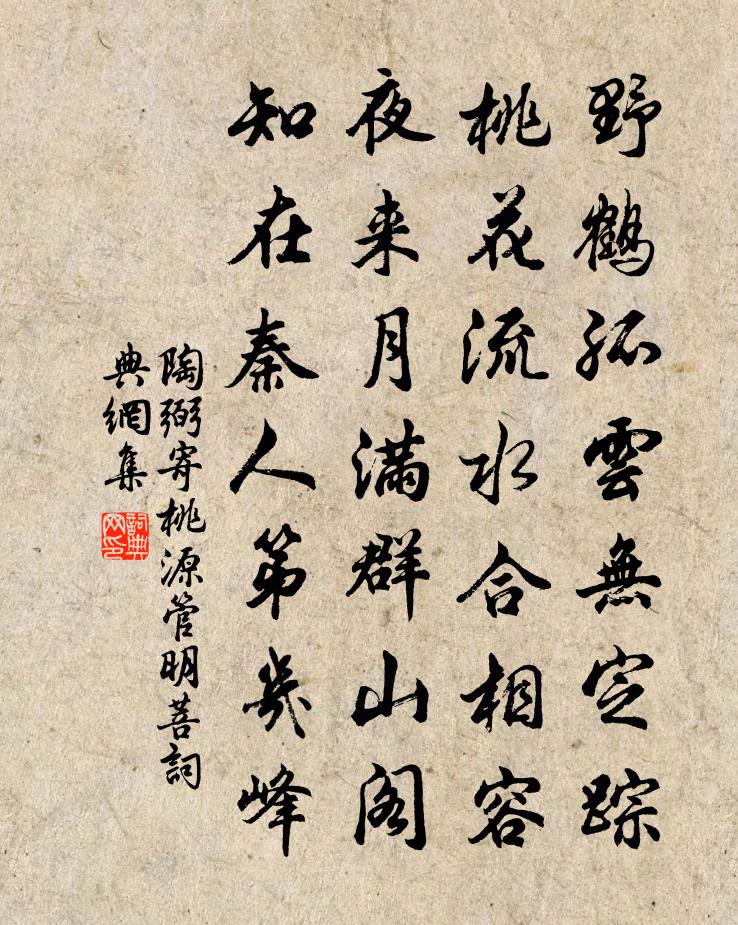 野鶴孤雲無定踪
桃花流水合相容
夜来月滿群山閣
知在秦人第幾峰
陶弼寄桃源管明菩詞
典網集
詞典
网印